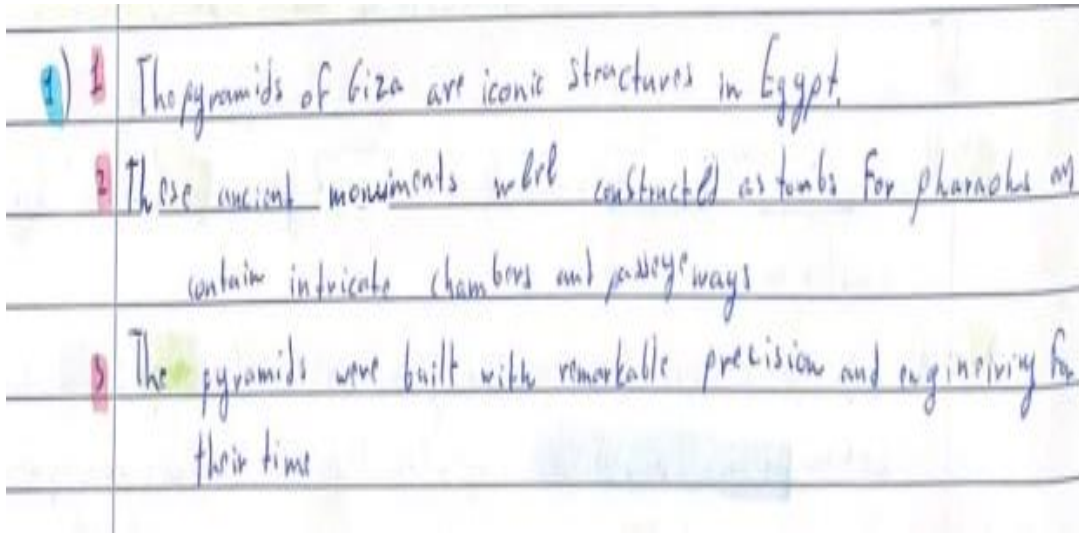 1) 1 The pyramids of Giza are iconic structures in Egypt.
2 These ancient monuments were constructed as tombs for pharaohs an
contain intricate chambers and passageways
3 The pyramids were built with remarkable precision and engineiring for
their time